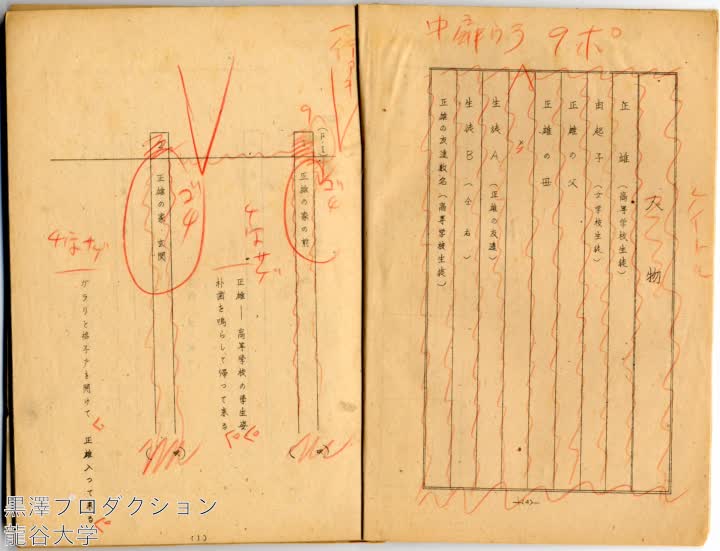 中扉ウラ 9ポ
人物
正雄 (高等学校生徒)
由起子 (小学校生徒)
正雄の父
正雄の母
生徒A (正雄の友達)
生徒B (仝右)
正雄の友達数名 (高等学校生徒)
(P.1)
正雄の家の前
ゴ4
4字サゲ
正雄—高等学校の学生姿
朴歯を鳴らして帰つて来る
正雄の家 玄関
ゴ4
4字サゲ
ガラリと格子戸を開けて 正雄入つて来る
(1)
黒澤プロダクション
龍谷大学